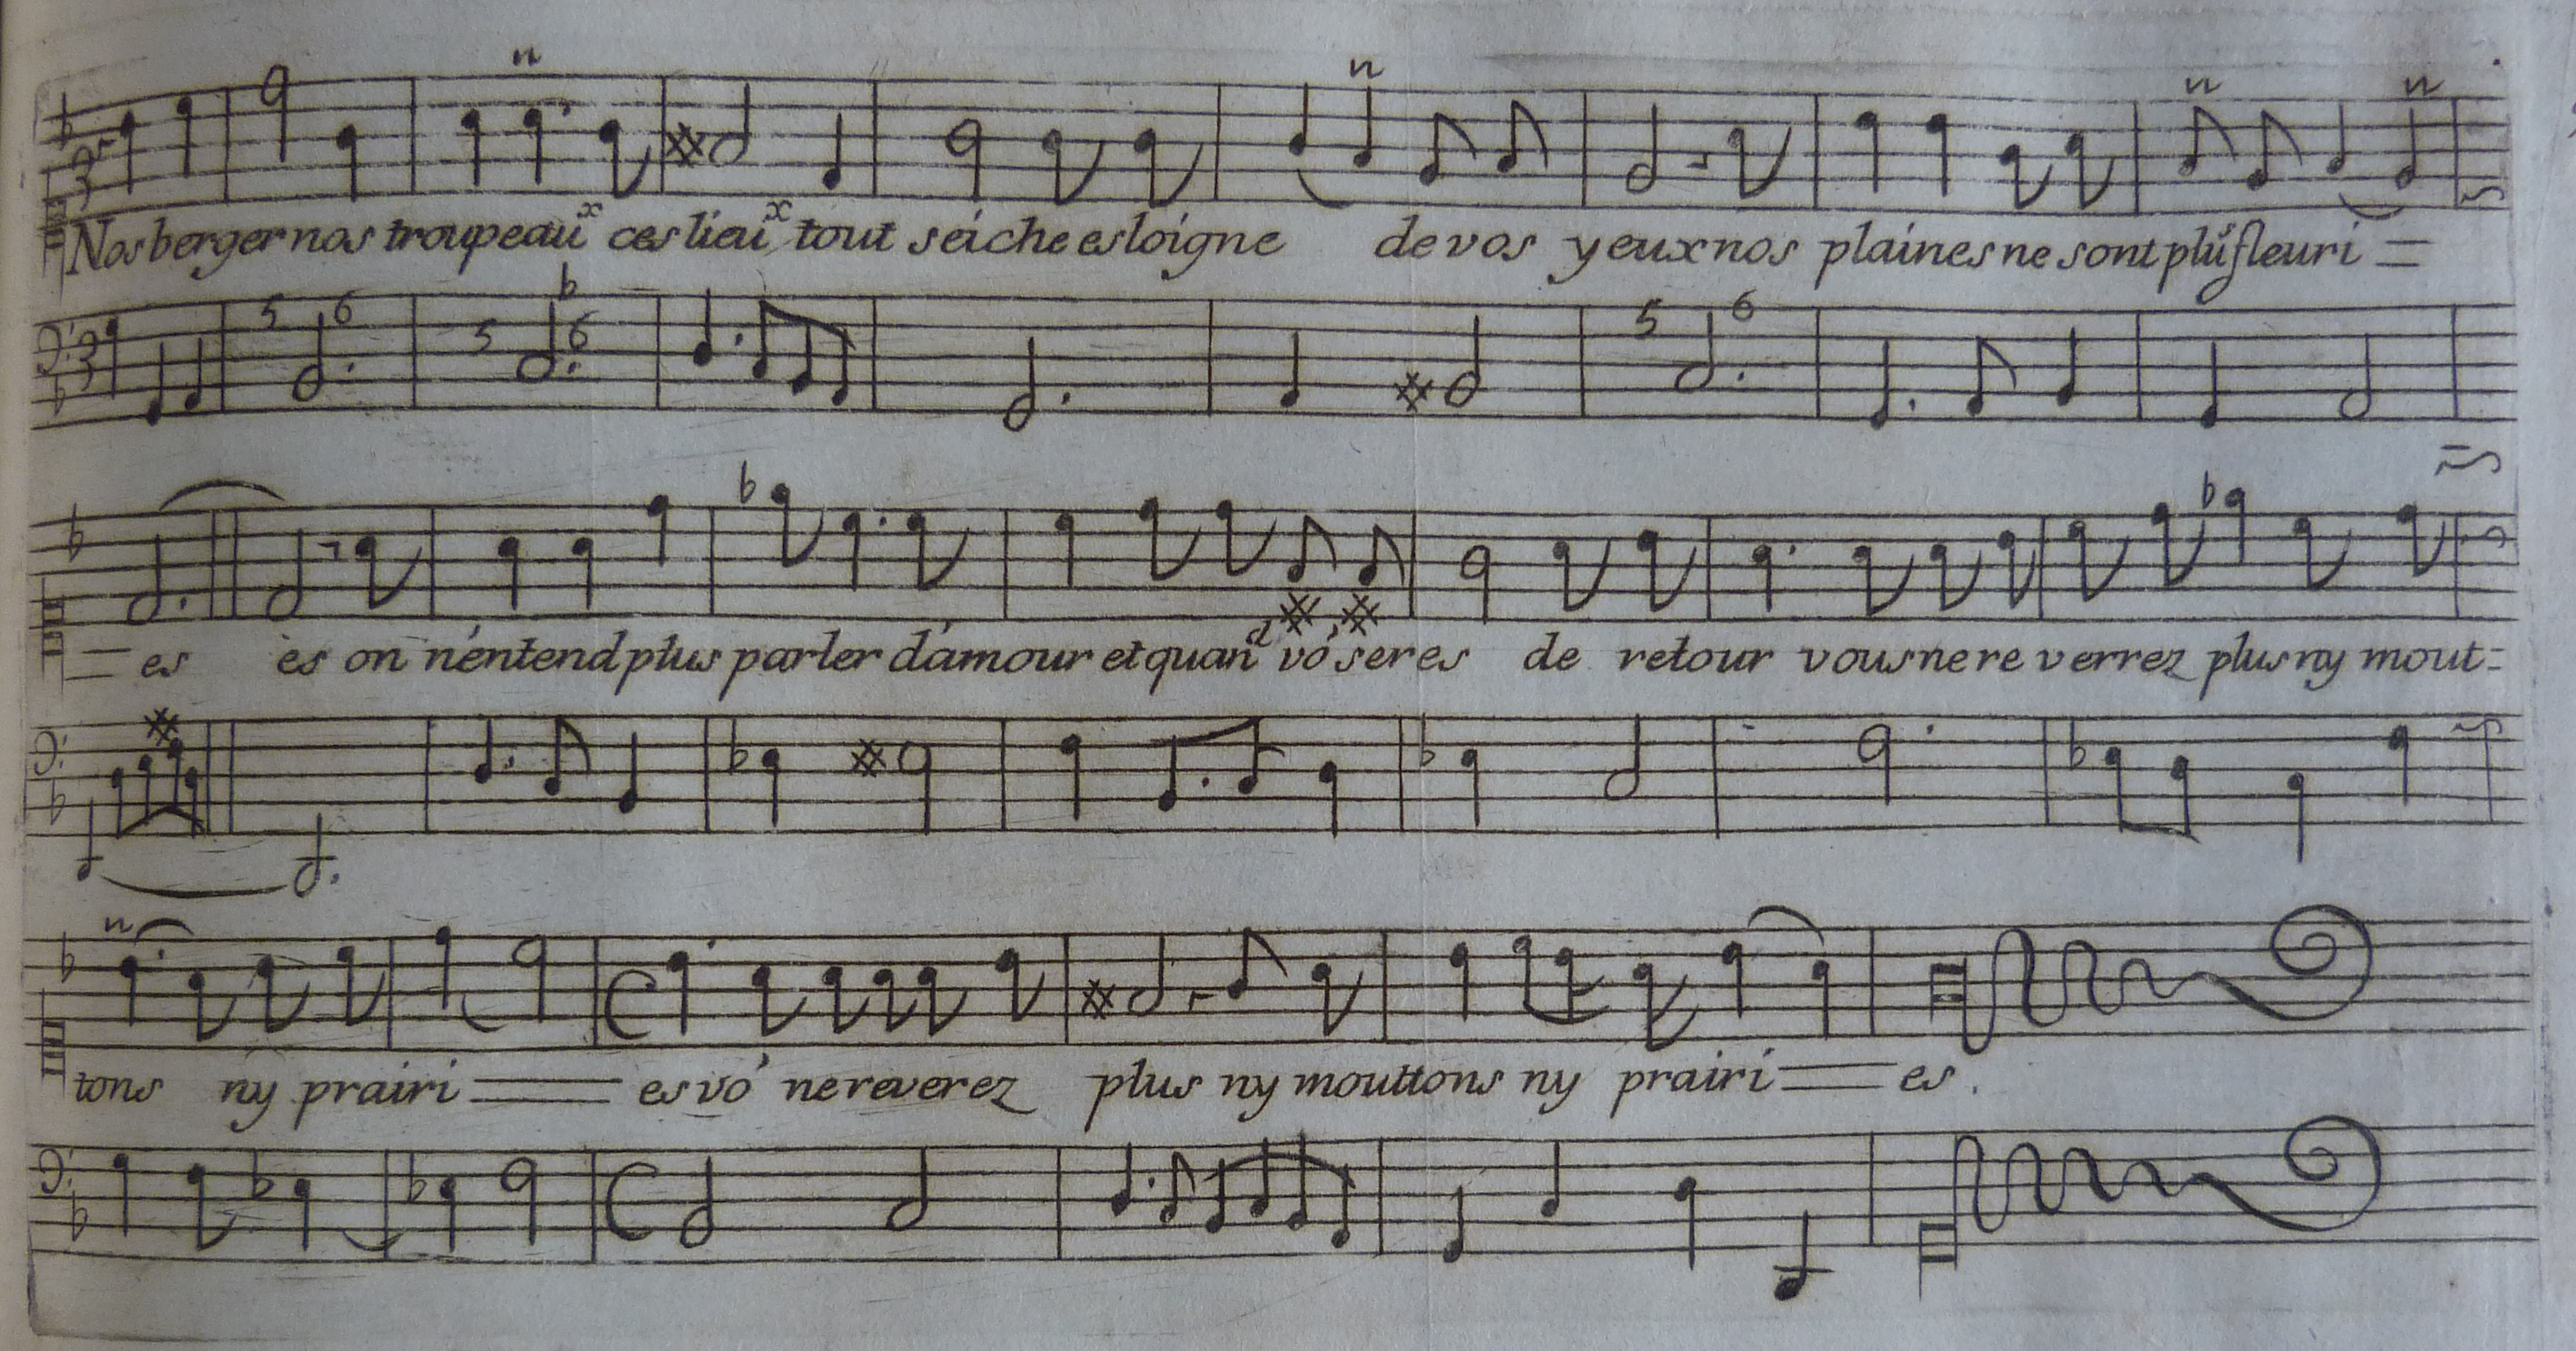 Nos berger nos troupeaux ces lieux tout seiche esloigne de vos yeux nos plaines ne sont plus fleuri =
5 6 5 6 5 6
= es ès on n'éntend plus parler d'ámour et quand vo' seres de retour vous ne re verrez plus ny mout=
tons ny prairi = es vo' ne reverez plus ny mouttons ny prairi = es.